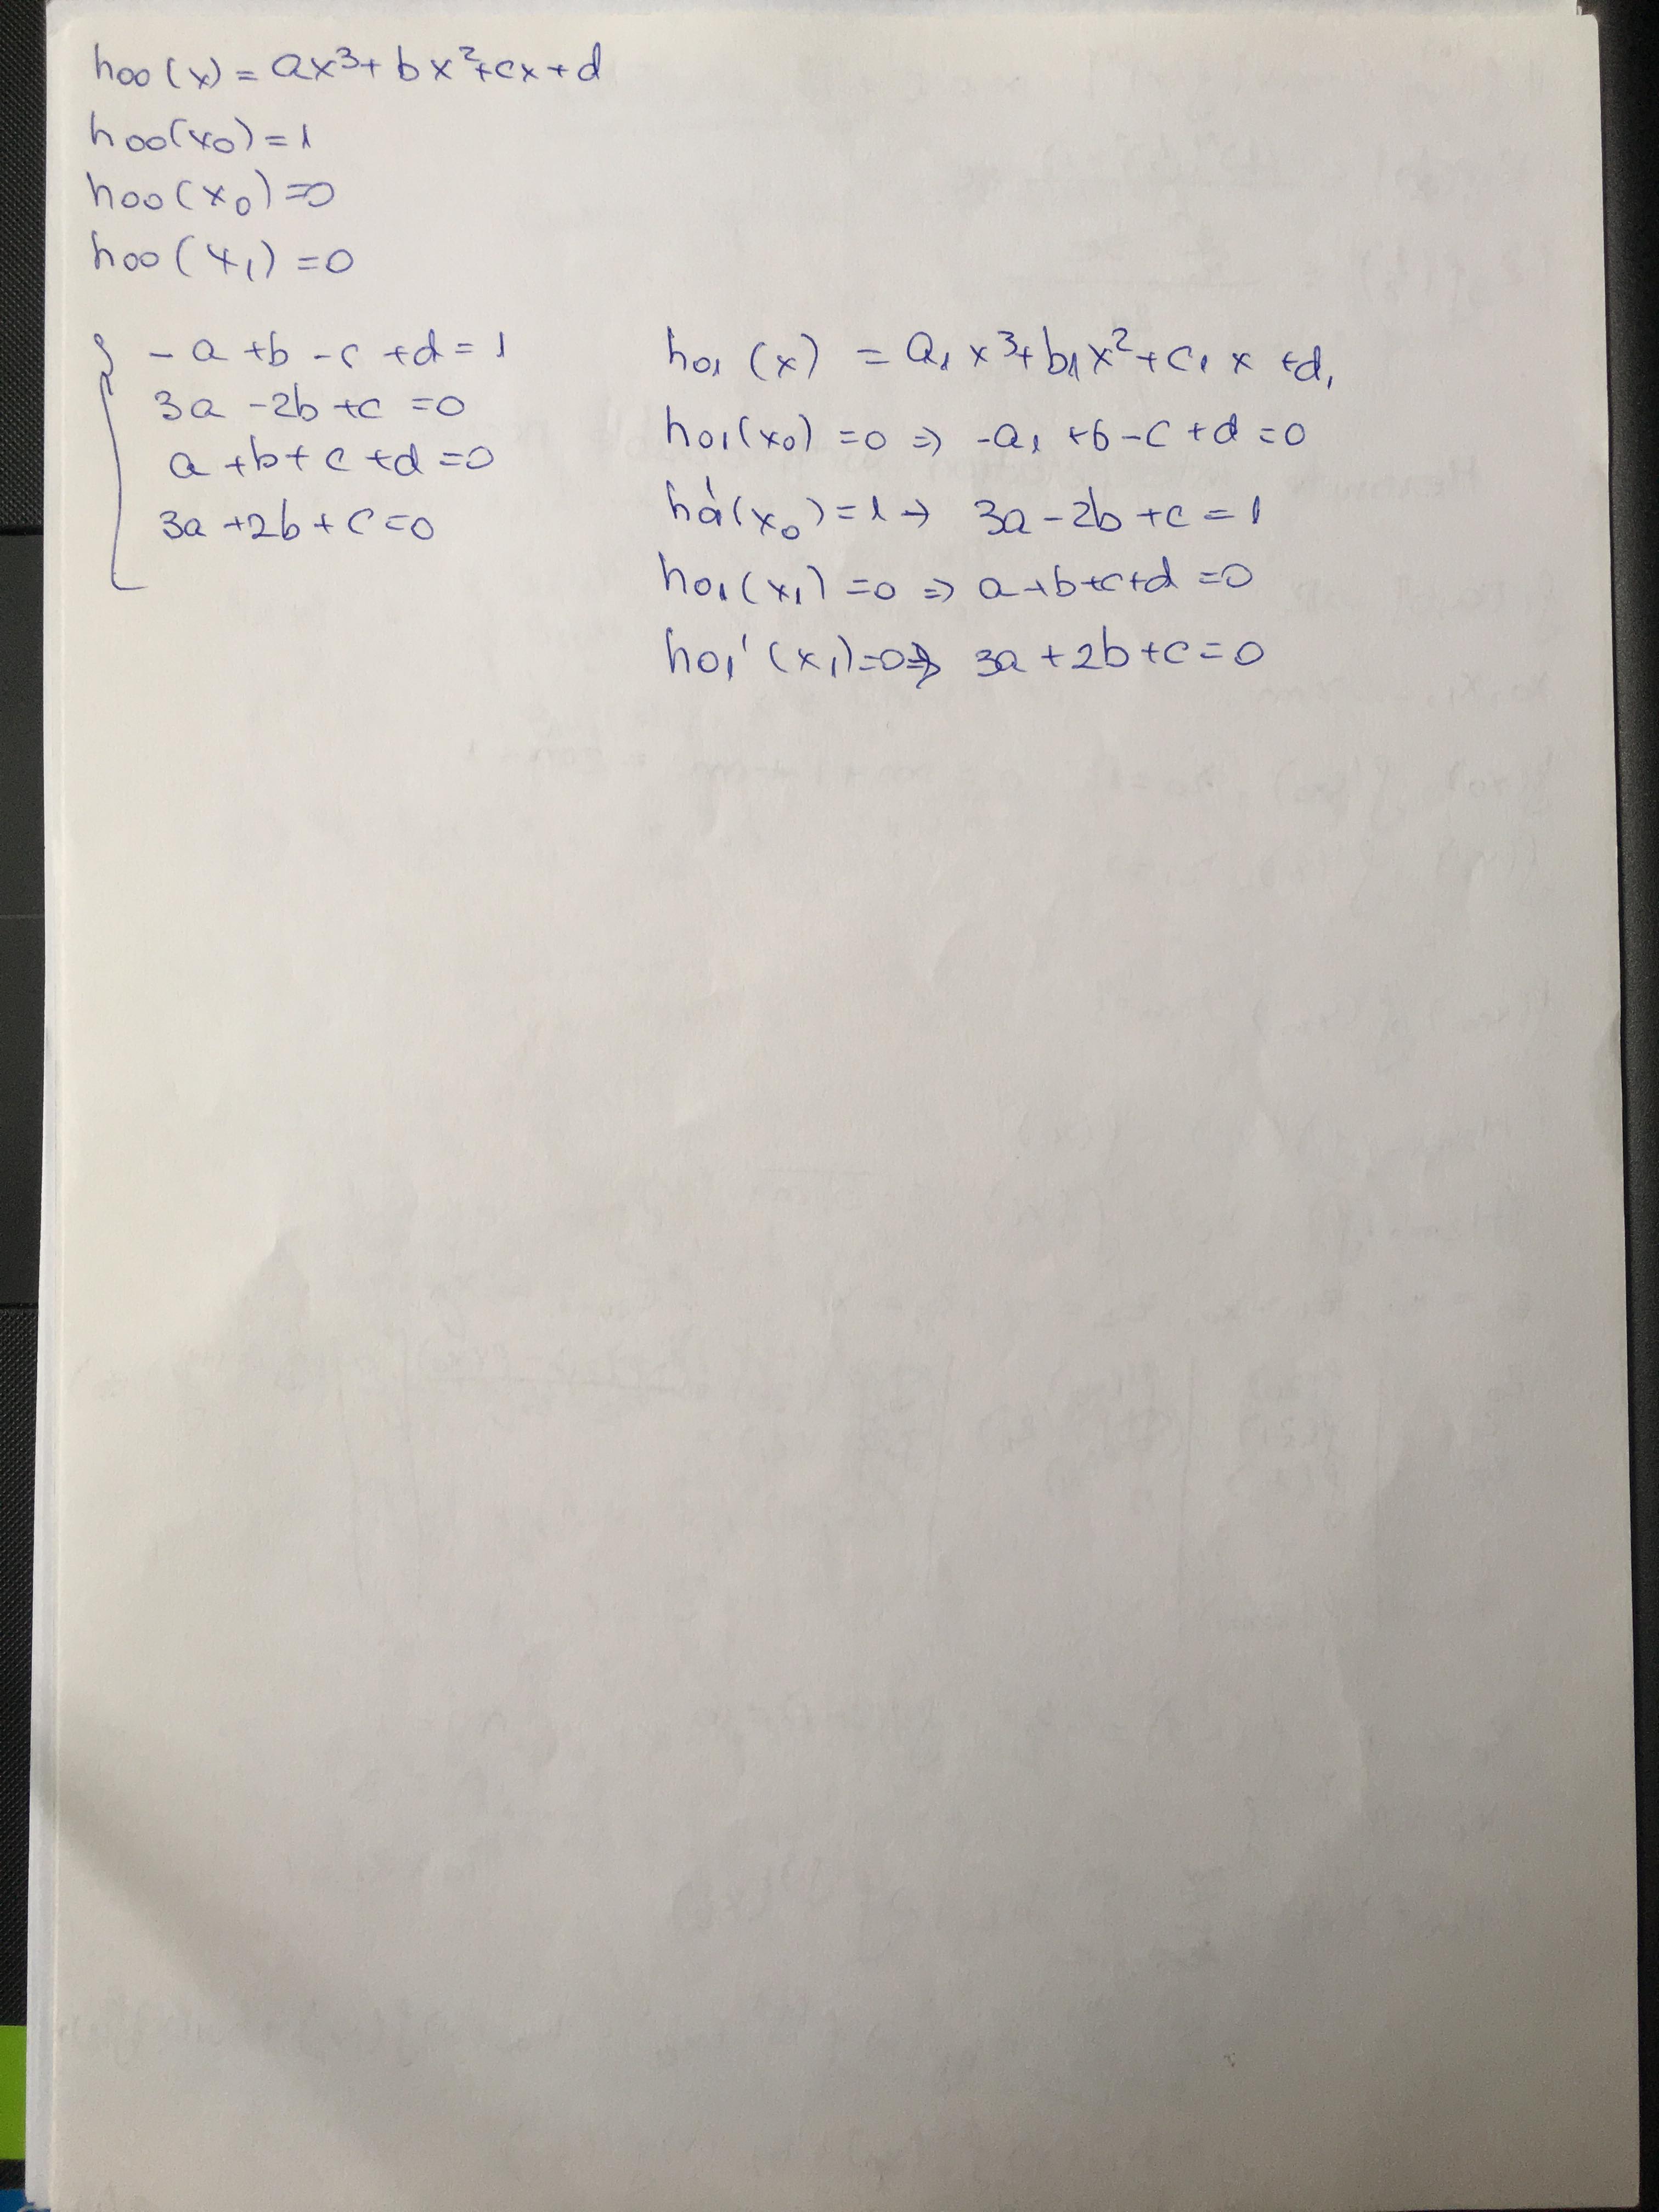 h00(x) = ax³ + bx² + cx + d
h00(x0) = 1
h00(x0) = 0
h00(x1) = 0
- a + b - c + d = 1
3a - 2b + c = 0
a + b + c + d = 0
3a + 2b + c = 0
h01(x) = a1x³ + b1x² + c1x + d1
h01(x0) = 0 ⇒ -a1 + b - c + d = 0
(x0) = 1 → 3a - 2b + c = 1
h01(x1) = 0 ⇒ a + b + c + d = 0
h01'(x1) = 0 ⇒ 3a + 2b + c = 0